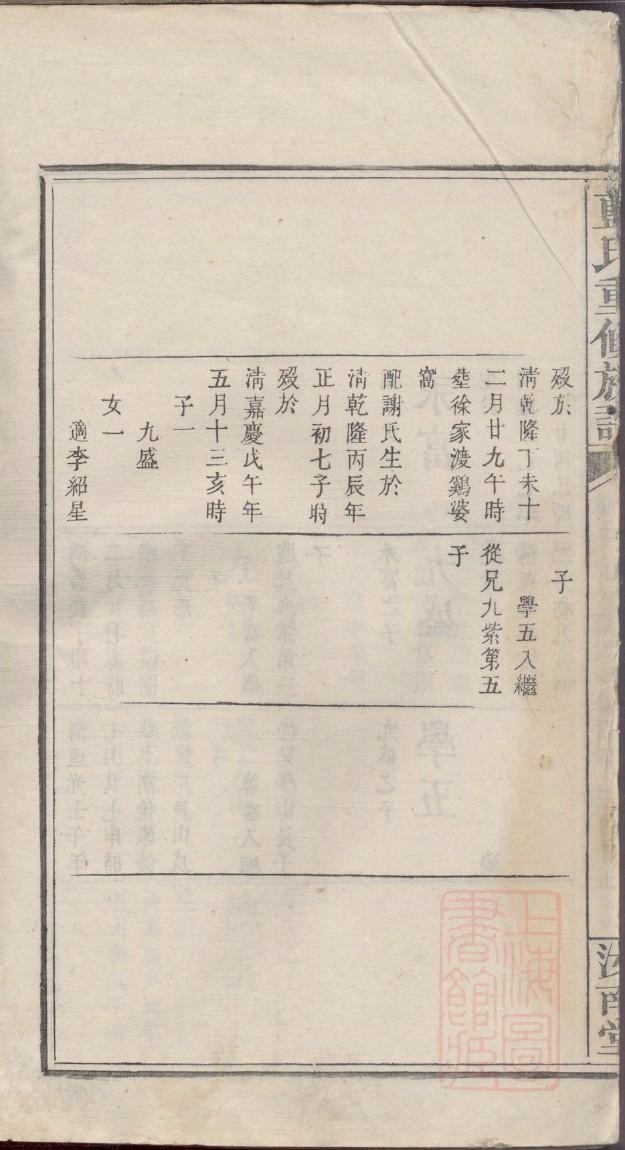 氏重修族譜
歿於
清乾隆丁未十
二月廿九午時
塟徐家渡鷄婆
窩
配謝氏生於
清乾隆丙辰年
正月初七子時
歿於
清嘉慶戊午年
五月十三亥時
子一
九盛
女一
適李紹星
子
學五入繼
從兄九紫第五
子
汝南堂
上海圖
書館藏